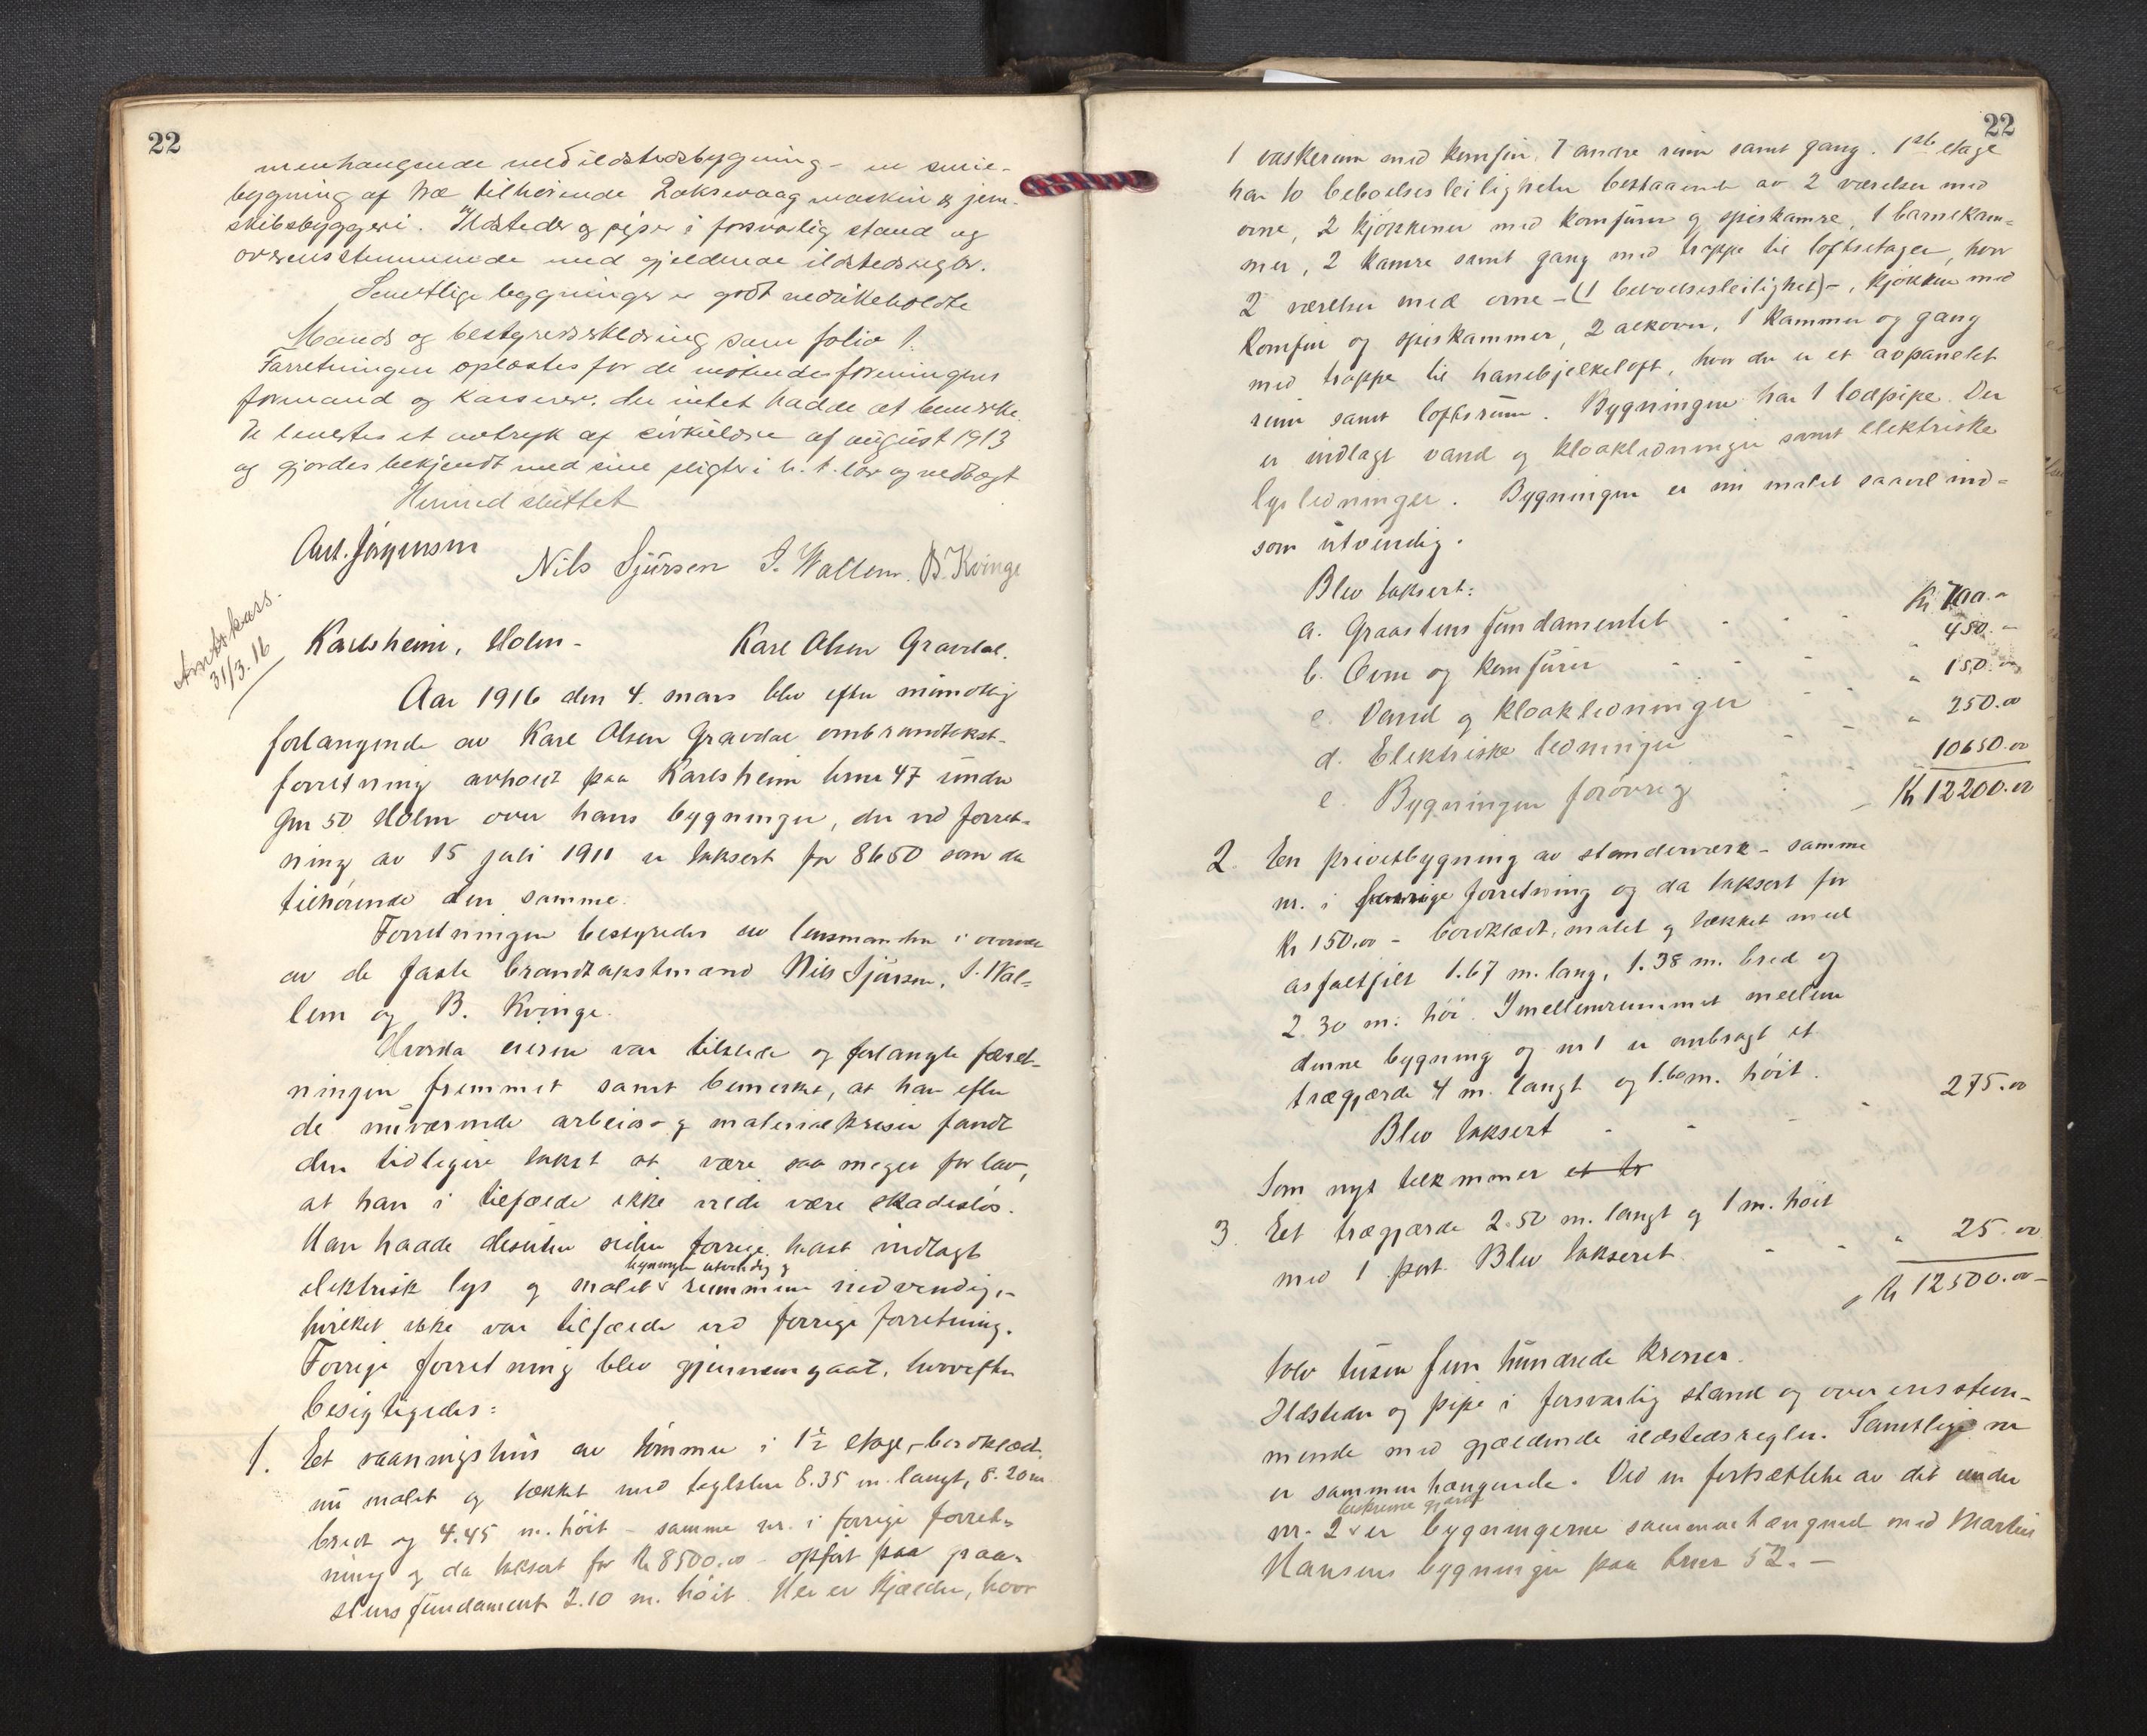 22
menhængende med ildstedsbygning - en smie-
bygning af træ tilhørende Laksevaag maskin & jern-
skibsbyggeri. Ildsteder og piper i forsvarlig stand og
overensstemmende med gjeldende ildstedsregler.
Samtlige bygninger er godt vedlikeholdte
Mands og bestyrerserklæring som folio 1.
Forretningen oplæstes for de møtende foreningens
formand og kasserer, der intet hadde at bemerke.
De levertes et avtryk af cirkulære af august 1913
og gjordes bekjendt med sine pligter i h. t. lov og vedtægt
Hermed sluttet
Ant. Jørgensen
Nils Sjursen S. Wallem. B. Kvinge
Amtskass.
31/3.16
Karlsheim, Holm - Karl Olsen Gravdal.
Aar 1916 den 4. mars blev efter mundtlig
forlangende av Karl Olsen Gravdal ombrandtakst-
forretning avholdt paa Karlsheim brnr 47 under
Gnr 50 Holm over hans bygninger, der ved forret-
ning av 15 juli 1911 er taksert for 8650 som da
tilhørende den samme.
Forretningen bestyredes av lensmanden i overvær
av de faste brandtakstmænd Nils Sjursen, S. Wal-
lem og B. Kvinge.
Hvorda eieren var tilstede og forlangte forret-
ningen fremmet samt bemerket, at han efter
de nuværende arbeids- og materialkriser fandt
den tidligere takst at være saa meget for lav,
at han i tilfælde ikke vilde være skadesløs.
Han hadde desuten siden forrige takst indlagt
bygningen utvendig og
elektrisk lys og malet rummene indvendig,-
hvilket ikke var tilfælde ved forrige forretning.
Forrige forretning blev gjennemgaat, hvorefter
besigtigedes:
1. Et vaaningshus av tømmer i 1½ etage,- bordklædt,
nu malet og tækket med teglsten 8.35 m. langt, 8.20 m
bredt og 4.45 m. høit - samme nr. i forrige forret-
ning og da taksert for kr 8500.00 - opført paa graa-
stens fundament 2.10 m. høit. Her er kjælder, hvor
22
1 vaskerum med komfur, 7 andre rum samt gang. 1ste etage
har to beboelsesleiligheter bestaaende av 2 værelser med
ovne, 2 kjøkkener med komfurer og spiskamre, 1 barnekam-
mer, 2 kamre samt gang med trappe til loftsetagen, hvor
2 værelser med ovne - (1 beboelsesleilighet) -, kjøkken med
komfur og spiskammer, 2 alkover, 1 kammer og gang
med trappe til hanebjelkeloft, hvor der er et avpanelet
rum samt loftsrum. Bygningen har 1 lodpipe. Der
er indlagt vand og kloakledninger samt elektriske
lysledninger. Bygningen er nu malet saavel ind-
som utvendig.
Blev taksert:
a. Graastens fundamentet - - - Kr 700.-
b. Ovne og komfurer - - - " 450.-
c. Vand og kloakledninger - - " 150.00
d. Elektriske ledninger - - " 250.00
e. Bygningen forøvrig - - " 10650.00
Kr 12200.00
2. En privetbygning av stenderverk - samme
nr. i forrige forretning og da taksert for
Kr 150.00 - bordklædt, malet og tækket med
asfaltfilt 1.67 m. lang, 1.38 m. bred og
2.30 m. høi. I mellemrummet mellem
denne bygning og nr 1 er anbragt et
trægjærde 4 m. langt og 1.60 m. høit.
Blev taksert - - - - 275.00
Som nyt tilkommer et tr
3. Et trægjærde 2.50 m. langt og 1 m. høit
med 1 port. Blev takseret - - " 25.00
Kr 12500.00-
tolv tusen fem hundrede kroner.
Ildsteder og pipe i forsvarlig stand og overensstem-
mende med gjældende ildstedsregler. Samtlige nr
er sammenhængende. Ved en fortsættelse av det under
beskrevne gjærde
nr. 2 er bygningerne sammenhængende med Martin
Hansens bygninger paa brnr 52. -